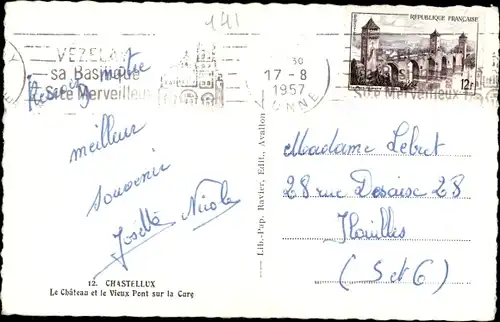 141
VEZELAY
sa Basilique
Site Merveilleux
30
17 - 8
1957
YONNE
REPUBLIQUE FRANÇAISE
12F
Site Merveilleux
Recevez notre
meilleur
souvenir
Josette Nicole
Madame Lebret
28 rue Desaise 28
Houilles
(S et O)
Lib.-Pap. Ravier, Edit., Avallon
12. CHASTELLUX
Le Château et le Vieux Pont sur la Cure